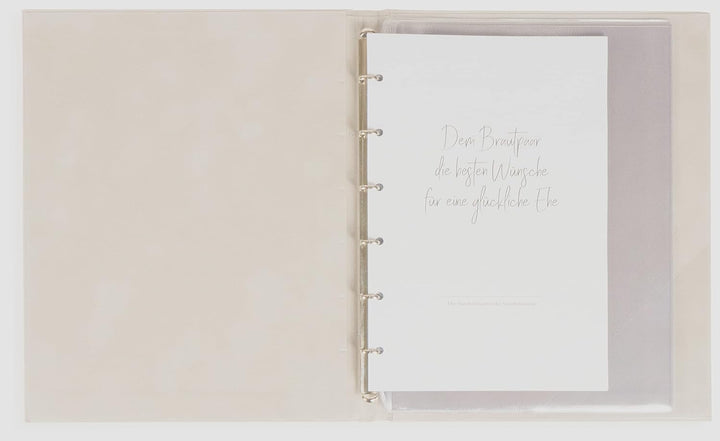 Dem Brautpaar
die besten Wünsche
für eine glückliche Ehe